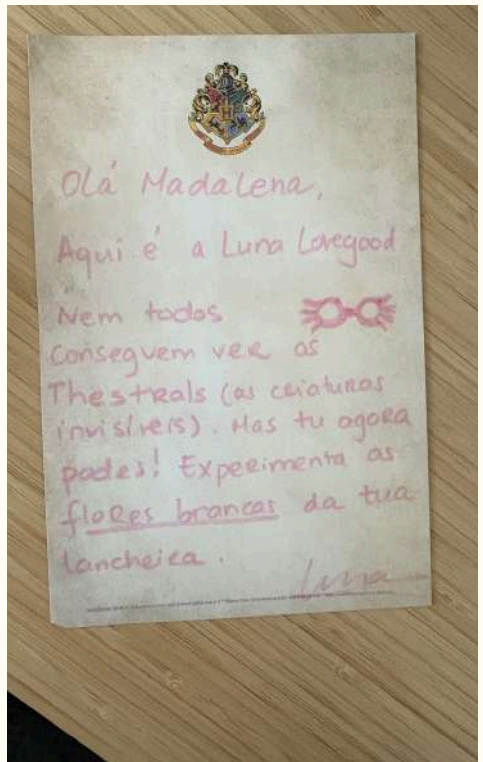 Olá Madalena,
Aqui é a Luna Lovegood
Nem todos
conseguem ver os
Thestrals (as criaturas
invisíveis). Mas tu agora
podes! Experimenta as
flores brancas da tua
lancheira.
Luna